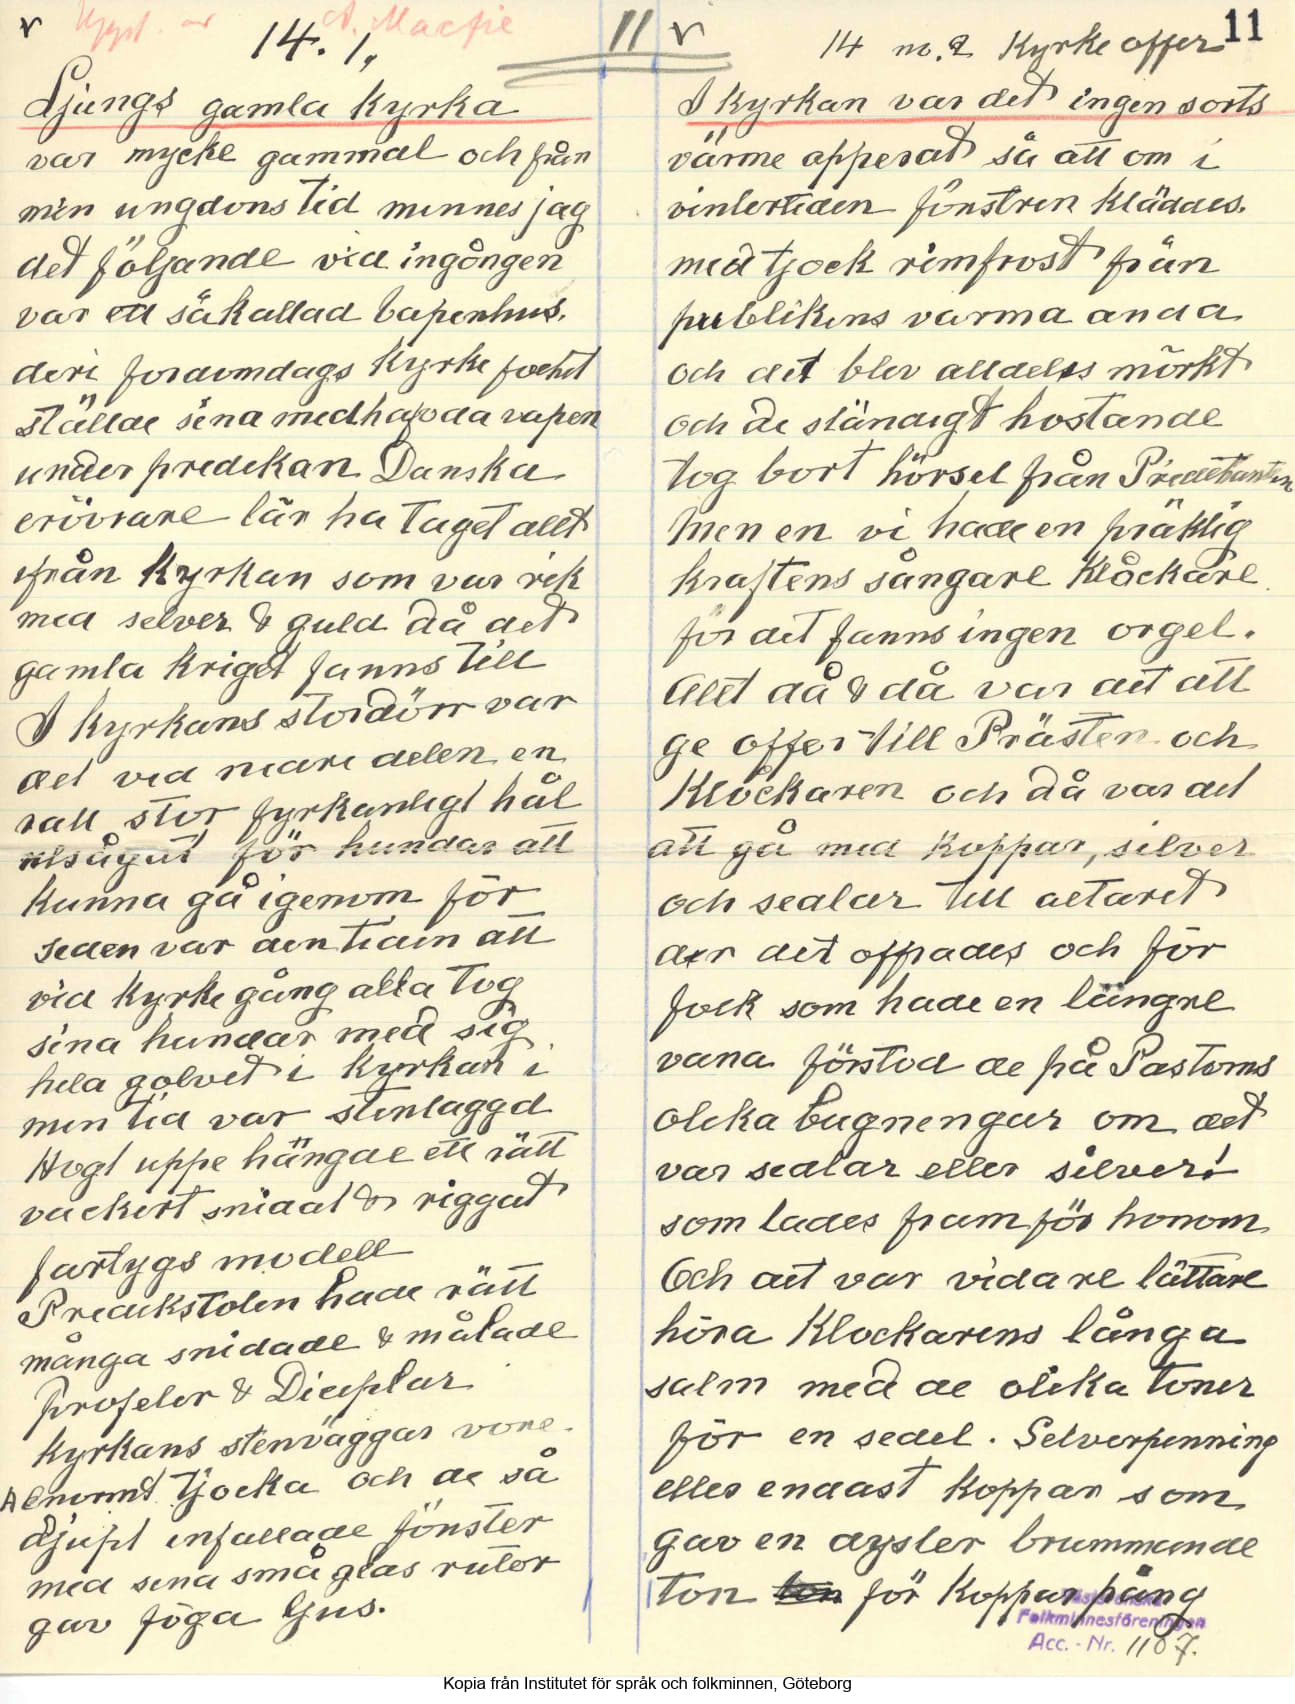 v Uppt. av A. Macfie
14. 1,
Ljungs gamla Kyrka
var mycke gammal och från
min ungdoms tid minnes jag
det följande vid ingången
var ett såkallad vapenhus.
deri fordomdags Kyrke folket
ställde sina medhavda vapen
under predikan Danska
erövrare lär ha taget allt
från Kyrkan som var rik
med selver & guld då det
gamla Kriget fanns till
I Kyrkans stordörr var
det vid nedre delen en
ratt stor fyrkantigt hål
utsågat för hundar att
Kunna gå igenom för
seden var den tiden att
vid Kyrke gång alla tog
sina hundar med sig
hela golvet i Kyrkan i
min tid var stenlaggd
Hogt uppe hängde ett rätt
vackert snidat & riggat
fartygs modell
Predikstolen hade rätt
många snidade & målade
profeter & Diciplar
Kyrkans stenväggar vore
Abnormt tjocka och de så
djupt infallade fönster
med sina små glas rutor
gav föga ljus.
11 v
11
14 no. 2 Kyrke offer
I Kyrkan var det ingen sorts
värme apperat så att om i
vintertiden fönstren Kläddes.
med tjock rimfrost från
publikens varma anda
och det blev alldeles mörkt
och de ständigt hostande
tog bort hörsel från Predikanten
Men en vi hade en präktig
kraftens sångare Klåckare
för det fanns ingen orgel.
Allt då & då var det att
ge offer till Prästen och
Klockaren och då var det
att gå med Koppar, silver
och sedlar till altaret
der det offrades och för
folk som hade en längre
vana förstod de på Pastorns
olika bugningar om det
var sedlar eller silver!
som lades fram för honom
Och det var vidare lättare
höra Klockarens långa
salm med de olika toner
för en sedel. Selverpenning
eller endast Koppar som
gav en dyster brummande
ton ton för Kopparpäng
Västsvenska
Folkminnesföreningen
Acc. - Nr. 1107.
Kopia från Institutet för språk och folkminnen, Göteborg